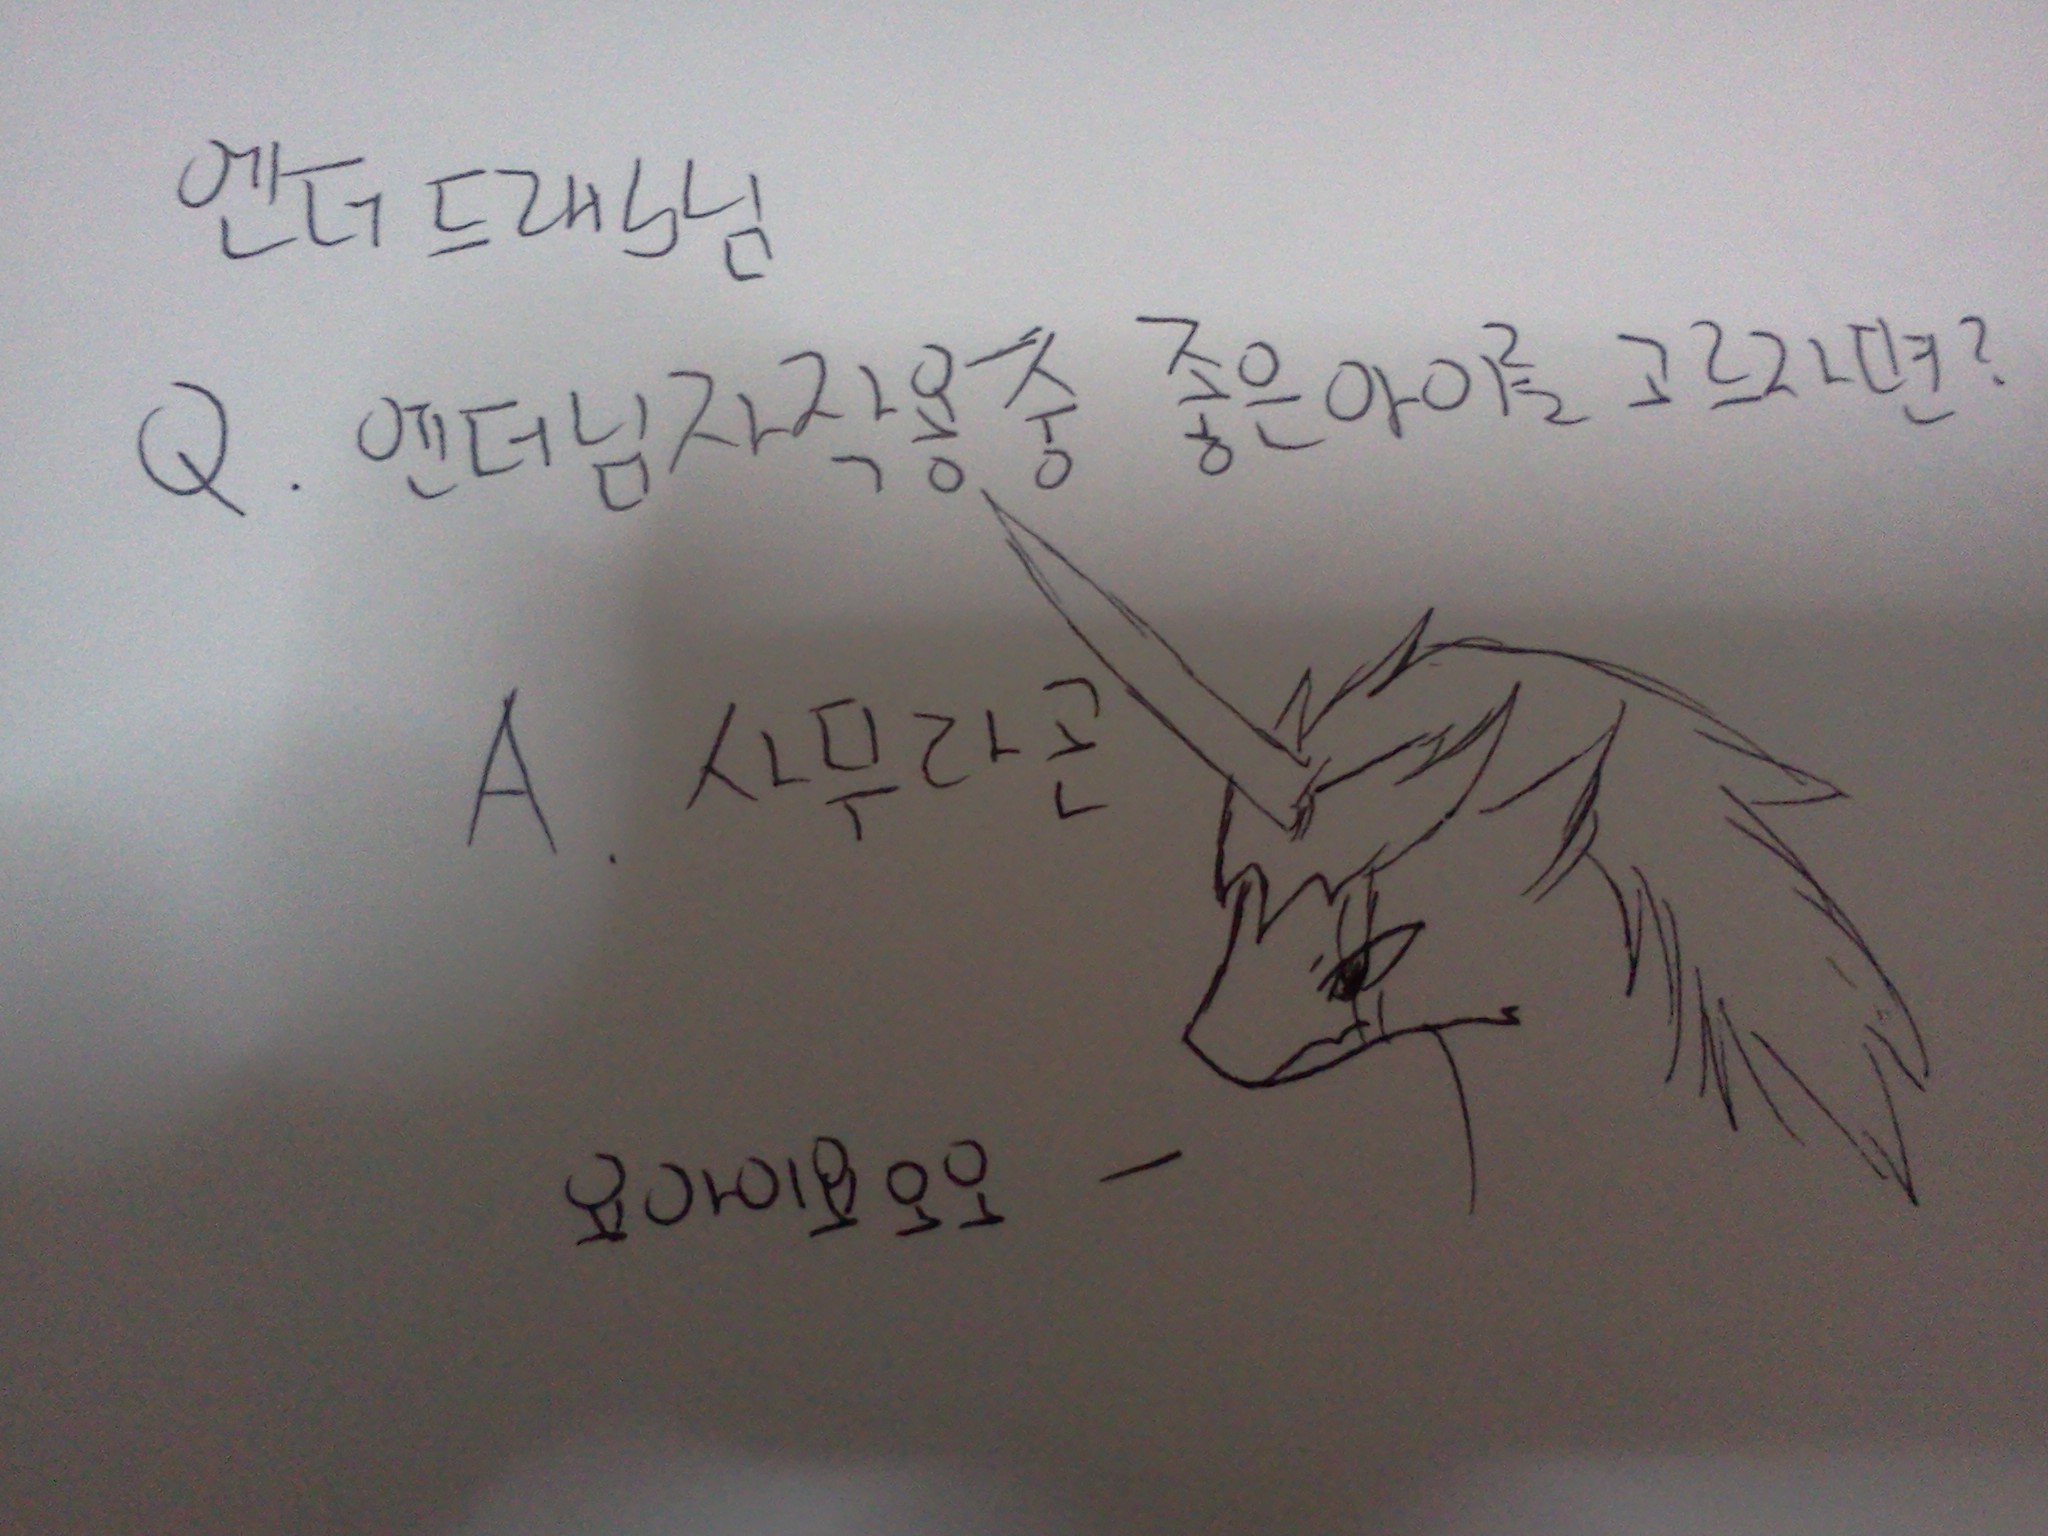 엔더드래곤님
Q. 엔더님자작용중 좋은아이를 고르자면?
A. 사무라곤
요이어요오오 -